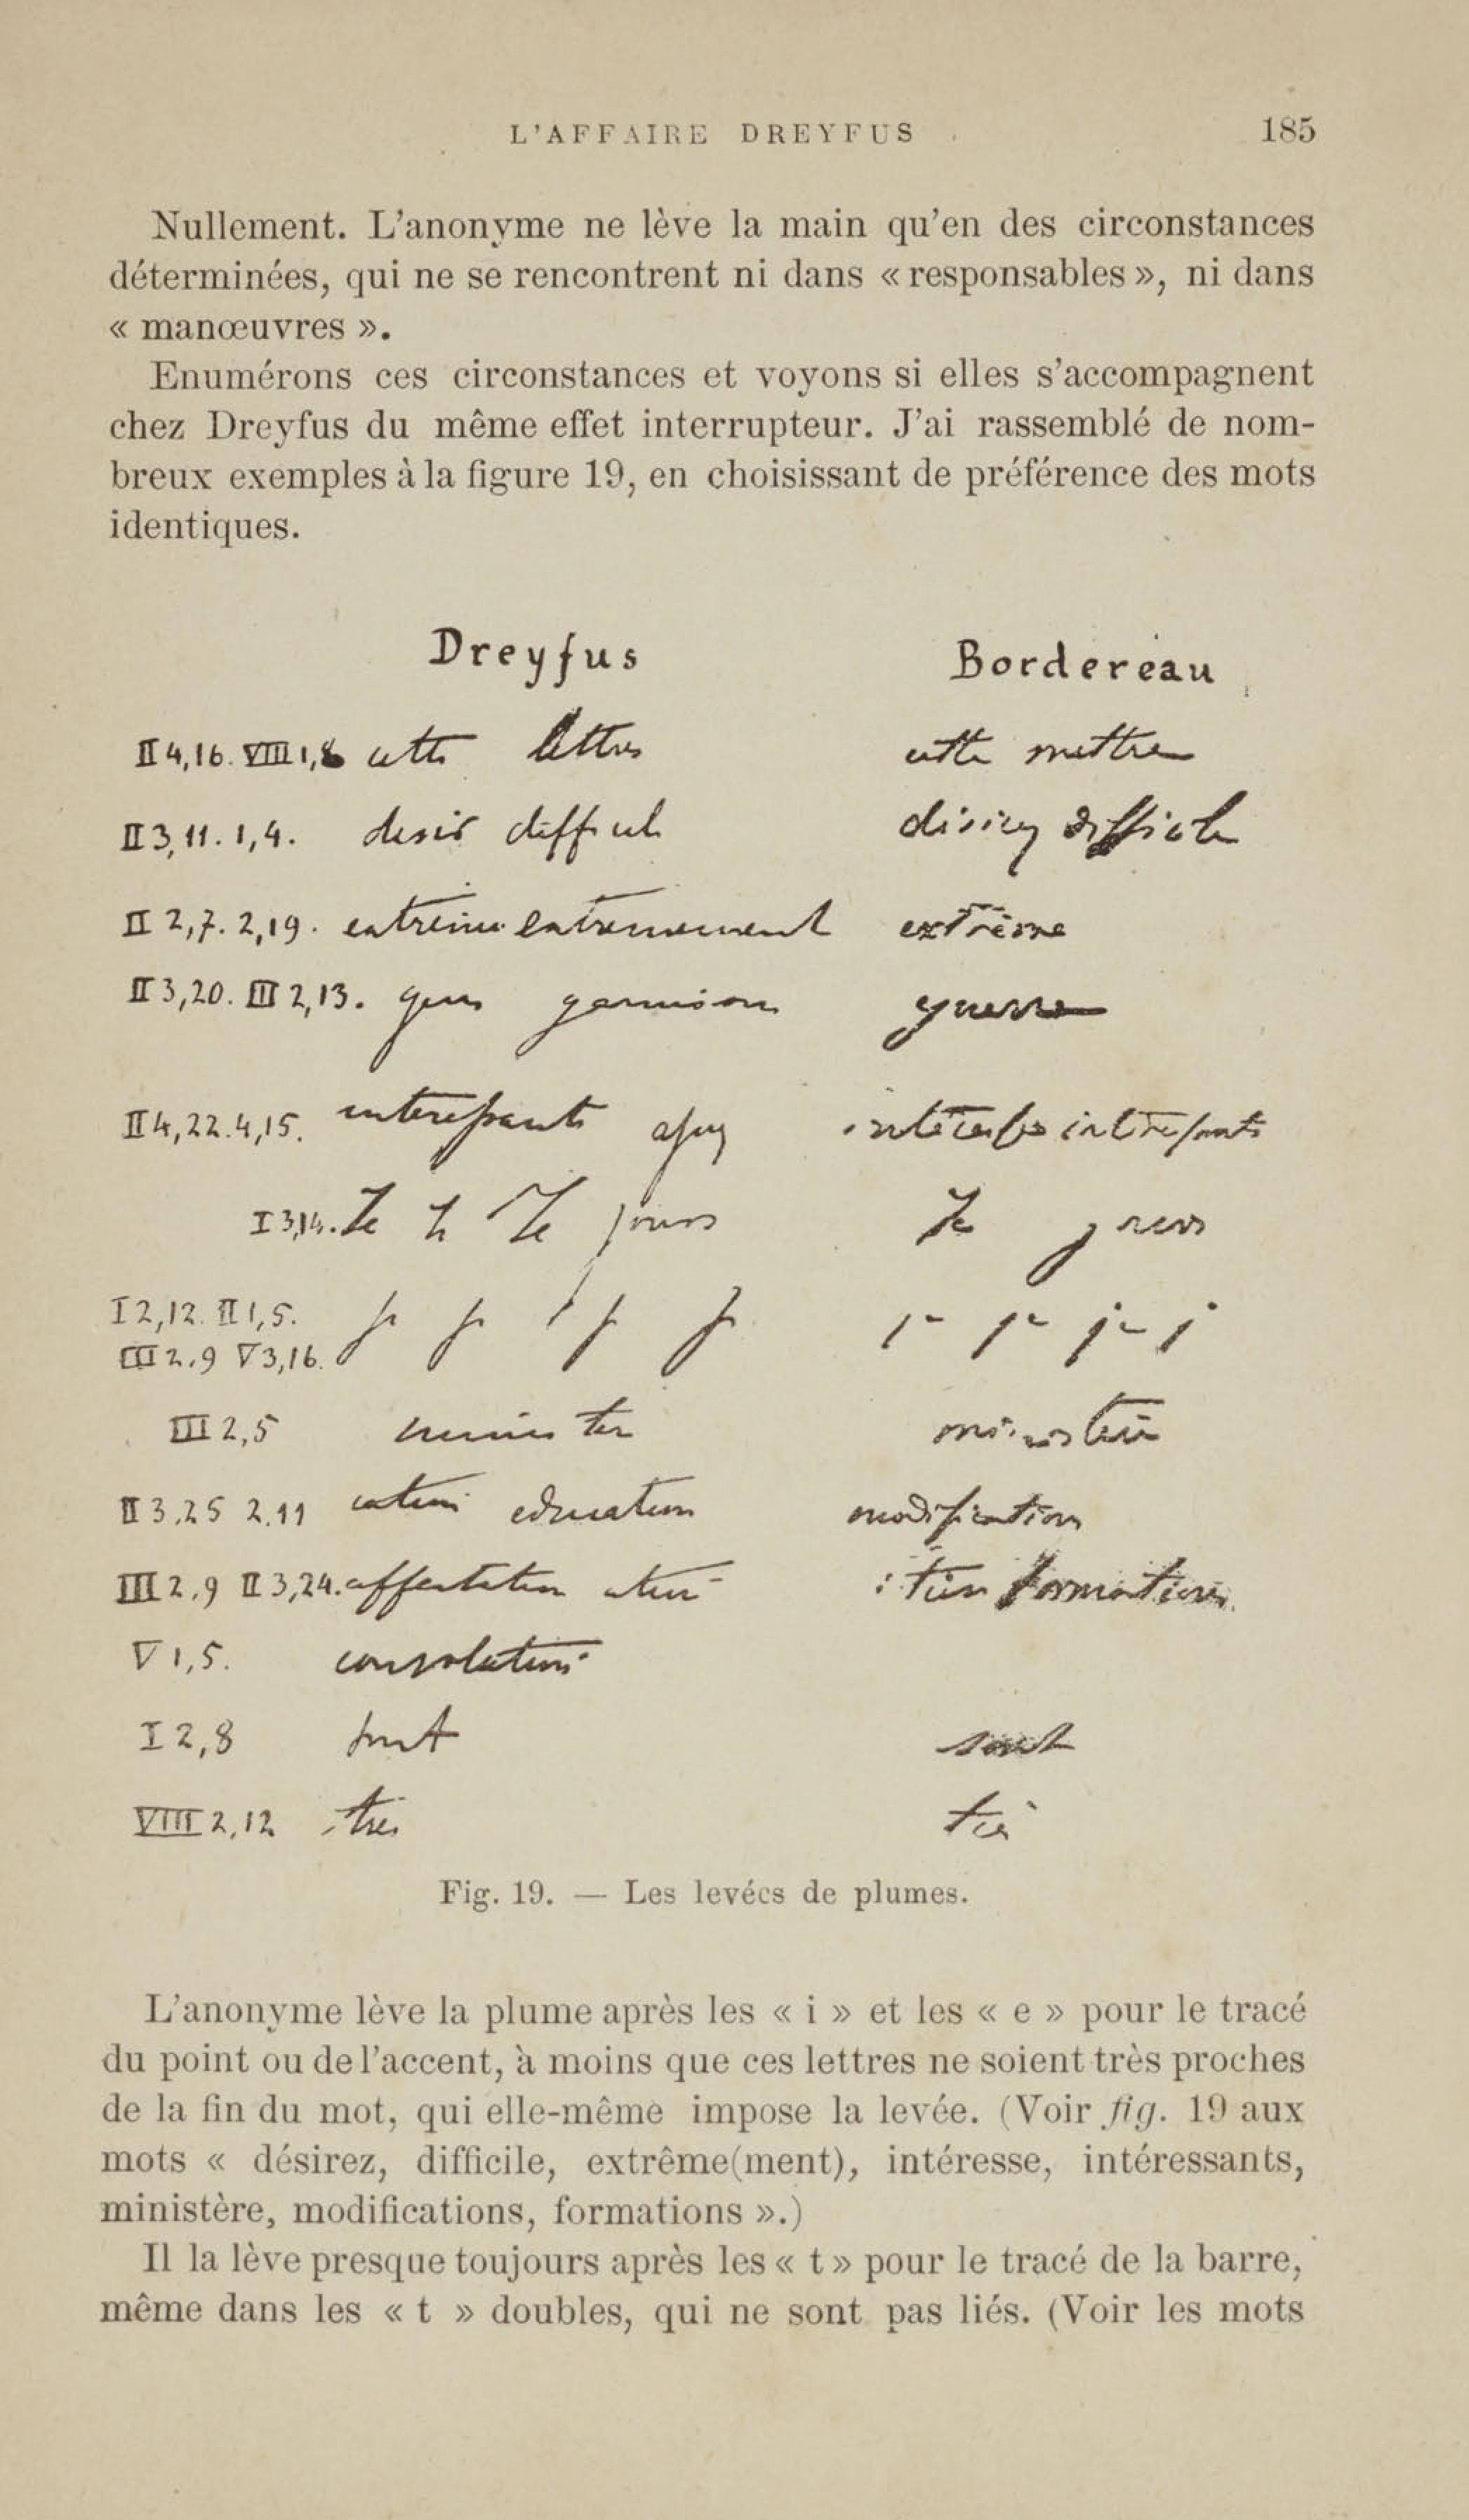 L'AFFAIRE DREYFUS 185
Nullement. L'anonyme ne lève la main qu'en des circonstances
déterminées, qui ne se rencontrent ni dans « responsables », ni dans
« manœuvres ».
Enumérons ces circonstances et voyons si elles s'accompagnent
chez Dreyfus du même effet interrupteur. J'ai rassemblé de nom-
breux exemples à la figure 19, en choisissant de préférence des mots
identiques.
Dreyfus Bordereau
II 4,16. VIII 1,8 cette lettres cette mettre
II 3,11. 1,4. desir difficile désirez difficile
II 2,7. 2,19. extrême extrêmement extrême
II 3,20. III 2,13. garnison guerre
II 4,22. 4,15. interessants intéresse intéressants
I 3,14. Je Je Je jours Je
I 2,12. II 1,5.
III 2.9 V 3,16.
III 2,5 minister ministère
II 3,25 2.11 education modifications
III 2.9 II 3,24. affectation formations
V 1,5. consolation
I 2,8 sont
VIII 2,12 très très
Fig. 19. — Les levées de plumes.
L'anonyme lève la plume après les « i » et les « e » pour le tracé
du point ou de l'accent, à moins que ces lettres ne soient très proches
de la fin du mot, qui elle-même impose la levée. (Voir fig. 19 aux
mots « désirez, difficile, extrême(ment), intéresse, intéressants,
ministère, modifications, formations ».)
Il la lève presque toujours après les « t » pour le tracé de la barre,
même dans les « t » doubles, qui ne sont pas liés. (Voir les mots